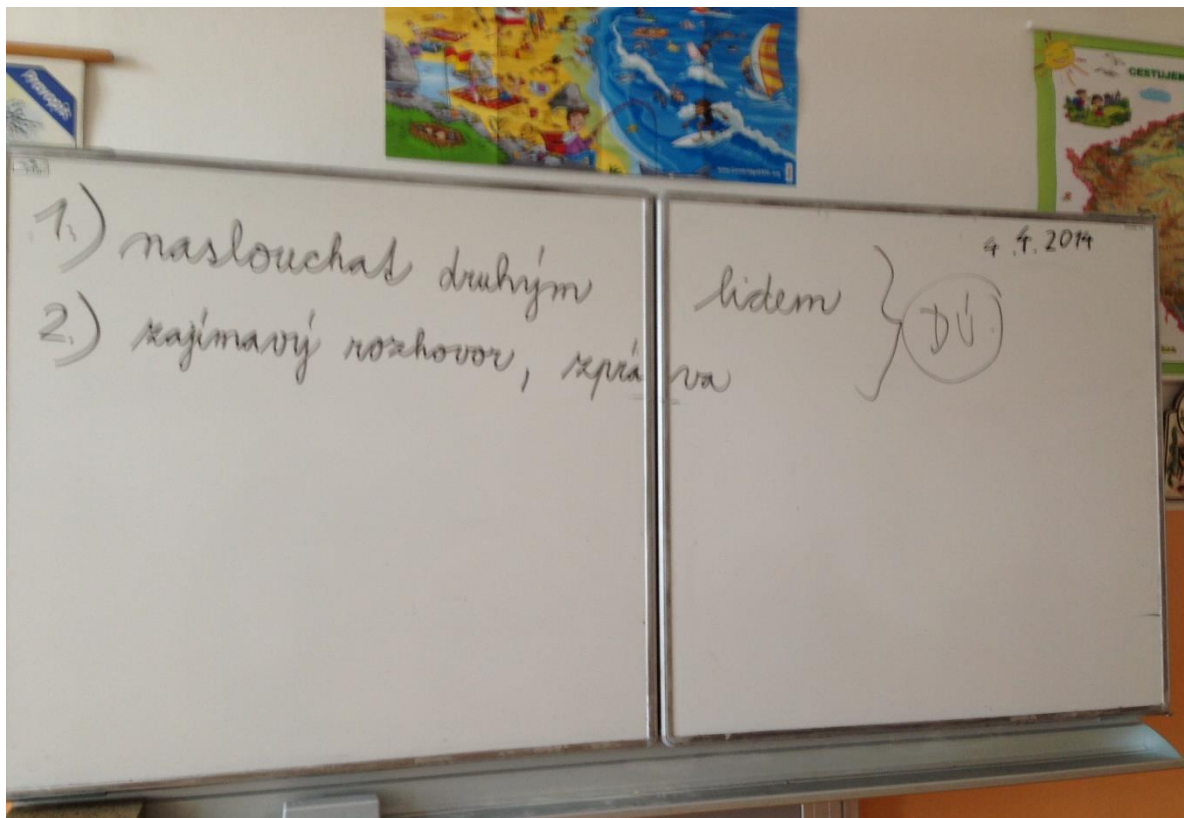 Pravopis
CESTUJEM
4.4.2014
1.) naslouchat druhým lidem } DÚ
2.) zajímavý rozhovor, zpráva